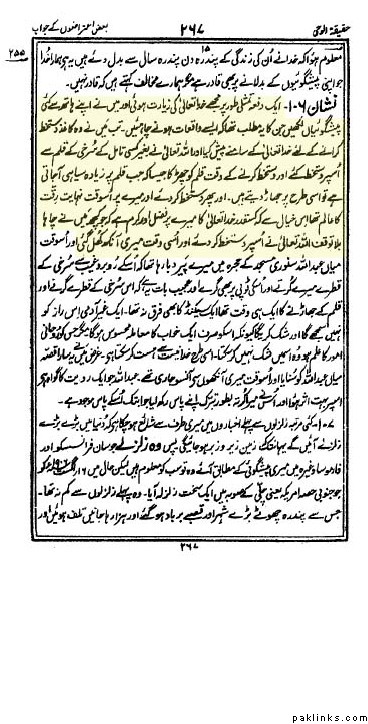 حقیقۃ الوحی ۲۶۷ بعض اعتراضوں کے جواب
۲۵۵
معلوم ہوا کہ خدا نے اُن کی زندگی کے پندرہ دن پندرہ سال سے بدل دئے ہیں یہی ہمارا خدا
جو اپنی پیشگوئیوں کے بدلانے پر بھی قادر ہے مگر ہمارے مخالف کہتے ہیں کہ قادر نہیں۔
نشان ۱۰۶۔ ایک دفعہ تمثلی طور پر مجھے خدا تعالیٰ کی زیارت ہوئی اور میں نے اپنے ہاتھ سے کئی
پیشگوئیاں لکھیں جن کا یہ مطلب تھا کہ ایسے واقعات ہونے چاہئیں۔ تب میں نے وہ کاغذ دستخط
کرانے کے لئے خدا تعالیٰ کے سامنے پیش کیا اور اللہ تعالیٰ نے بغیر کسی تامل کے سُرخی کے قلم سے
اُسپر دستخط کئے اور دستخط کرنے کے وقت قلم کو چھڑکا جیسا کہ جب قلم پر زیادہ سیاہی آجاتی
ہے تو اسی طرح پر جھاڑ دیتے ہیں۔ اور پھر دستخط کردئے اور میرے پر اُسوقت نہایت رقّت
کا عالم تھا اس خیال سے کہ کسقدر خدا تعالیٰ کا میرے پر فضل اور کرم ہے کہ جو کچھ میں نے چاہا
بلا توقف اللہ تعالیٰ نے اُسپر دستخط کردئے اور اُسی وقت میری آنکھ کھل گئی اور اُسوقت
میاں عبداللہ سنوری مسجد کے حجرہ میں میرے پیر دبا رہا تھا کہ اسکے روبرو غیب سے سُرخی کے
قطرے میرے کُرتے اور اُسکی ٹوپی پر بھی گرے اور عجیب بات یہ ہے کہ اُس سُرخی کے قطرے گرنے اور
قلم کے جھاڑنے کا ایک ہی وقت تھا ایک سیکنڈ کا بھی فرق نہ تھا۔ ایک غیر آدمی اِس راز کو
نہیں سمجھے گا اور شک کریگا کیونکہ اُسکو صرف ایک خواب کا معاملہ محسوس ہوگا مگر جس کو روحانی
امور کا علم ہو وہ اسمیں شک نہیں کرسکتا۔ اِسی طرح خدا نیست سے ہست کرسکتا ہے۔ غرض میں نے یہ سارا قصّہ
میاں عبداللہ کو سُنایا اور اُسوقت میری آنکھوں سے آنسو جاری تھے۔ عبداللہ جو ایک رویت کا گواہ ہے
اسپر بہت اثر ہوا اور اُسنے میرا کُرتہ بطور تبرّک اپنے پاس رکھ لیا جو ابتک اُسکے پاس موجود ہے۔
۱۰۷۔ کئی مرتبہ زلزلوں سے پہلے اخباروں میں میری طرف سے شائع ہوچکا ہے کہ دُنیا میں بڑے بڑے
زلزلے آئیں گے یہانتک کہ زمین زیر و زبر ہوجائیگی۔ پس وہ زلزلے جو سان فرانسسکو اور
فارموسا وغیرہ میں میری پیشگوئی کے مطابق آئے وہ تو سب کو معلوم ہیں لیکن حال میں ۱۶ اگست کو
جو جنوبی حصہ امریکہ یعنی چلی کے صوبہ میں ایک سخت زلزلہ آیا۔ وہ پہلے زلزلوں سے کم نہ تھا۔
جس سے پندرہ چھوٹے بڑے شہر اور قصبے برباد ہوگئے اور ہزارہا جانیں تلف ہوئیں اور
۲۶۷
paklinks.com